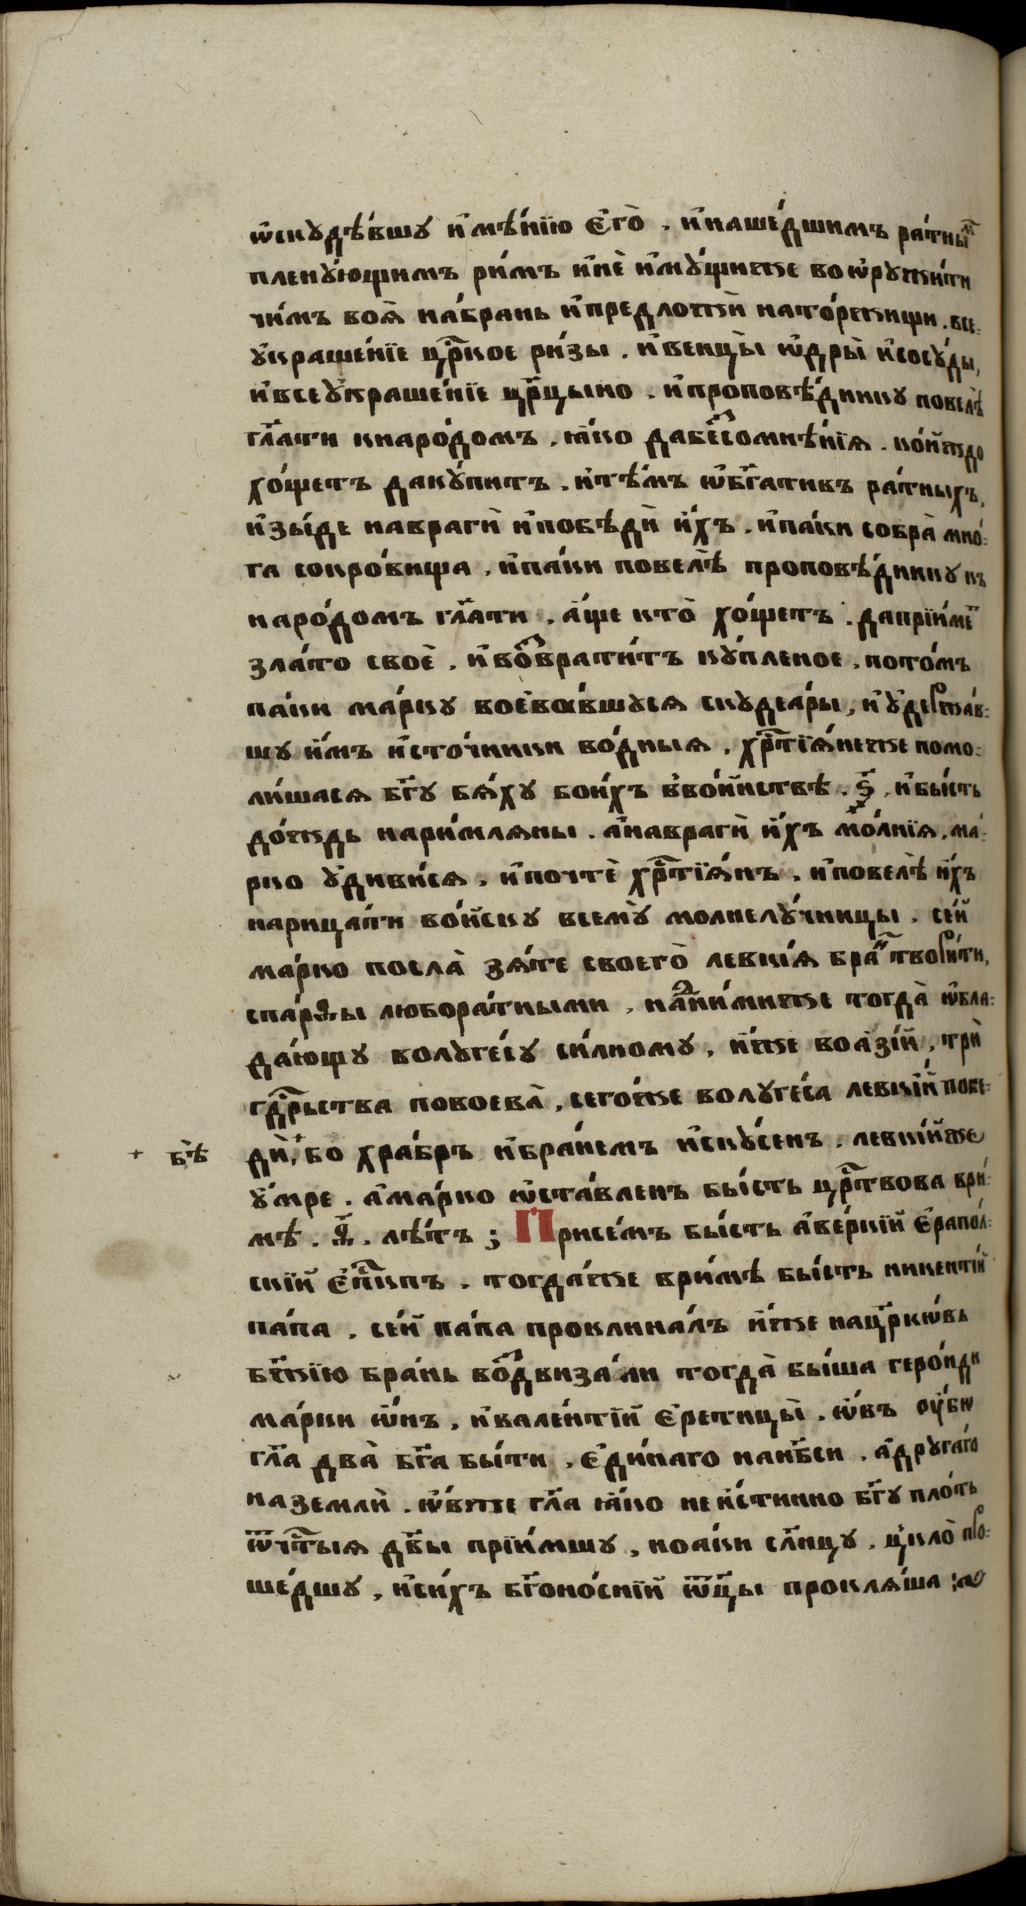 ѡ҆скꙋдѣ́вшꙋ и҆мѣ́нїю є҆гѡ̀ . и҆наше́дшимъ ра́тны̑м
пленꙋ́ющимъ ри́мъ и҆нѐ и҆мꙋ́щиже воѡ҆рꙋжи́ти
чи́мъ воѧ̀ на́брань и҆предложѝ нато́ржищи . все-
ꙋ҆краше́нїе цр҃кое ри́зы . и҆венцы̀ ѡ҆дры̀ и҆сосꙋ́ды,
и҆всеꙋ҆краше́нїе цр҃цыно . и҆проповѣ́дникꙋ повелѣ̀
гл҃ати кнаро́домъ . ꙗ҆́ко дабе́сомнѣ́нїѧ . ко́йждо
хо́щетъ дакꙋ́питъ . и҆тѣ́мъ ѡ҆бг҃ативъ ра́тныхъ,
и҆зы́де навраги̑ и҆побѣди̑ и҆́хъ . и҆па́ки собра̀ мно́-
га сокро́вища . и҆па́ки повелѣ̀ проповѣ́дникꙋ къ
наро́домъ гл҃ати . а҆́ще кто̀ хо́щетъ . дапрїи́метъ
зла́то своѐ . и҆во́звратитъ кꙋ́пленое . пото́мъ
па́ки ма́ркꙋ воева́вшꙋсѧ скꙋдеа́ры, и҆ꙋ҆держа́в-
шꙋ и҆́мъ и҆сто́чники во́дныѧ . хрⷭ҇тїѧ́неже помо-
ли́шасѧ бг҃ꙋ бѧ́хꙋ бои́хъ в̾во́инствѣ . ѕ҃ . и҆бы́сть
до́ждь нари́млѧны . а҆навраги̑ и҆́хъ мо́лнїѧ . ма́-
рко ꙋ҆диви́сѧ . и҆почтѐ хрⷭ҇тїѧ́нъ . и҆повелѣ̀ и҆́хъ
нарица́ти во́йскꙋ всемꙋ̀ молнелꙋ́чницы . се́й
ма́рко посла̀ зѧ́те своего̀ левкі́ѧ бра́н твори́ти,
спа́рѳы любора́тными . на́нимиже тогда̀ ѡ҆бла-
да́ющꙋ волꙋге́сꙋ си́лномꙋ, и҆́же воа҆зі́й . трѝ
гдⷭ҇рьства повоева̀ . сего́же волꙋге́са левкі́й побе-
дѝ, + бо хра́бръ и҆бра́немъ и҆скꙋ́сенъ . левкі́йже
+ бѣ̀
ꙋ҆́мре . а҆ма́рко ѡ҆ста́вленъ бы́сть црⷭ҇твова ври́-
мѣ . ѳ҃ . лѣ́тъ ; Присе́мъ бы́сть а҆ве́ркїй є҆рапо́л-
скїй є҆пⷭ҇кпъ . тогда́же ври́мѣ бы́сть никентїй
па́па . се́й па́па проклина́лъ и҆́же нацр҃ковь
бж҃їю бра́нь воздвиза́ли тогда̀ бы́ша геро́иди
ма́рки ѡ҆́нъ . и҆вале́нтїй є҆ретицы̀ . ѡ҆́въ ᲂу҆́бѡ
гл҃а два̀ бг҃а бы́ти . є҆ди́наго нанб҃си . а҆дрꙋга́го
наземлѝ . ѡ҆́вже гл҃а ꙗ҆́ко неи҆́стинно бг҃ꙋ пло́ть
ѿчⷭ҇тыѧ дв҃ы прїи́мшꙋ, ноа҆́ки сл҃нцꙋ . цкло̀ про-
ше́дшꙋ, и҆си́хъ бг҃оно́снїй ѿц҃ы проклѧ́ша :~